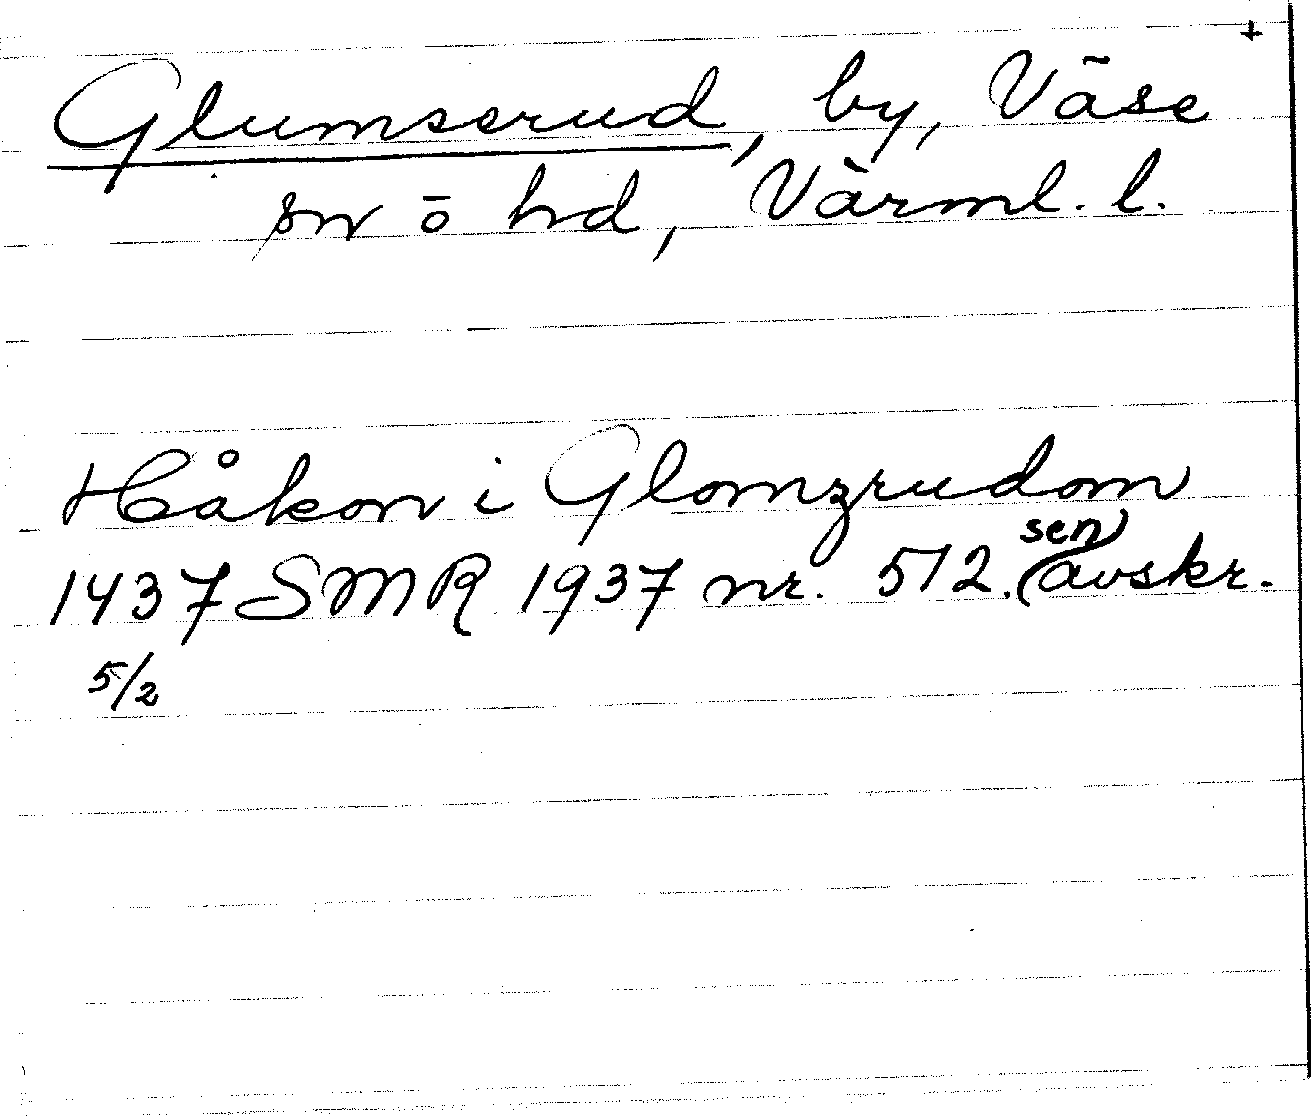 +
Glumserud, by, Väse
sn o hd, Värml. l.
Håkon i Glomzrudom
1437 SMR 1937 nr. 512. sen avskr.
5/2